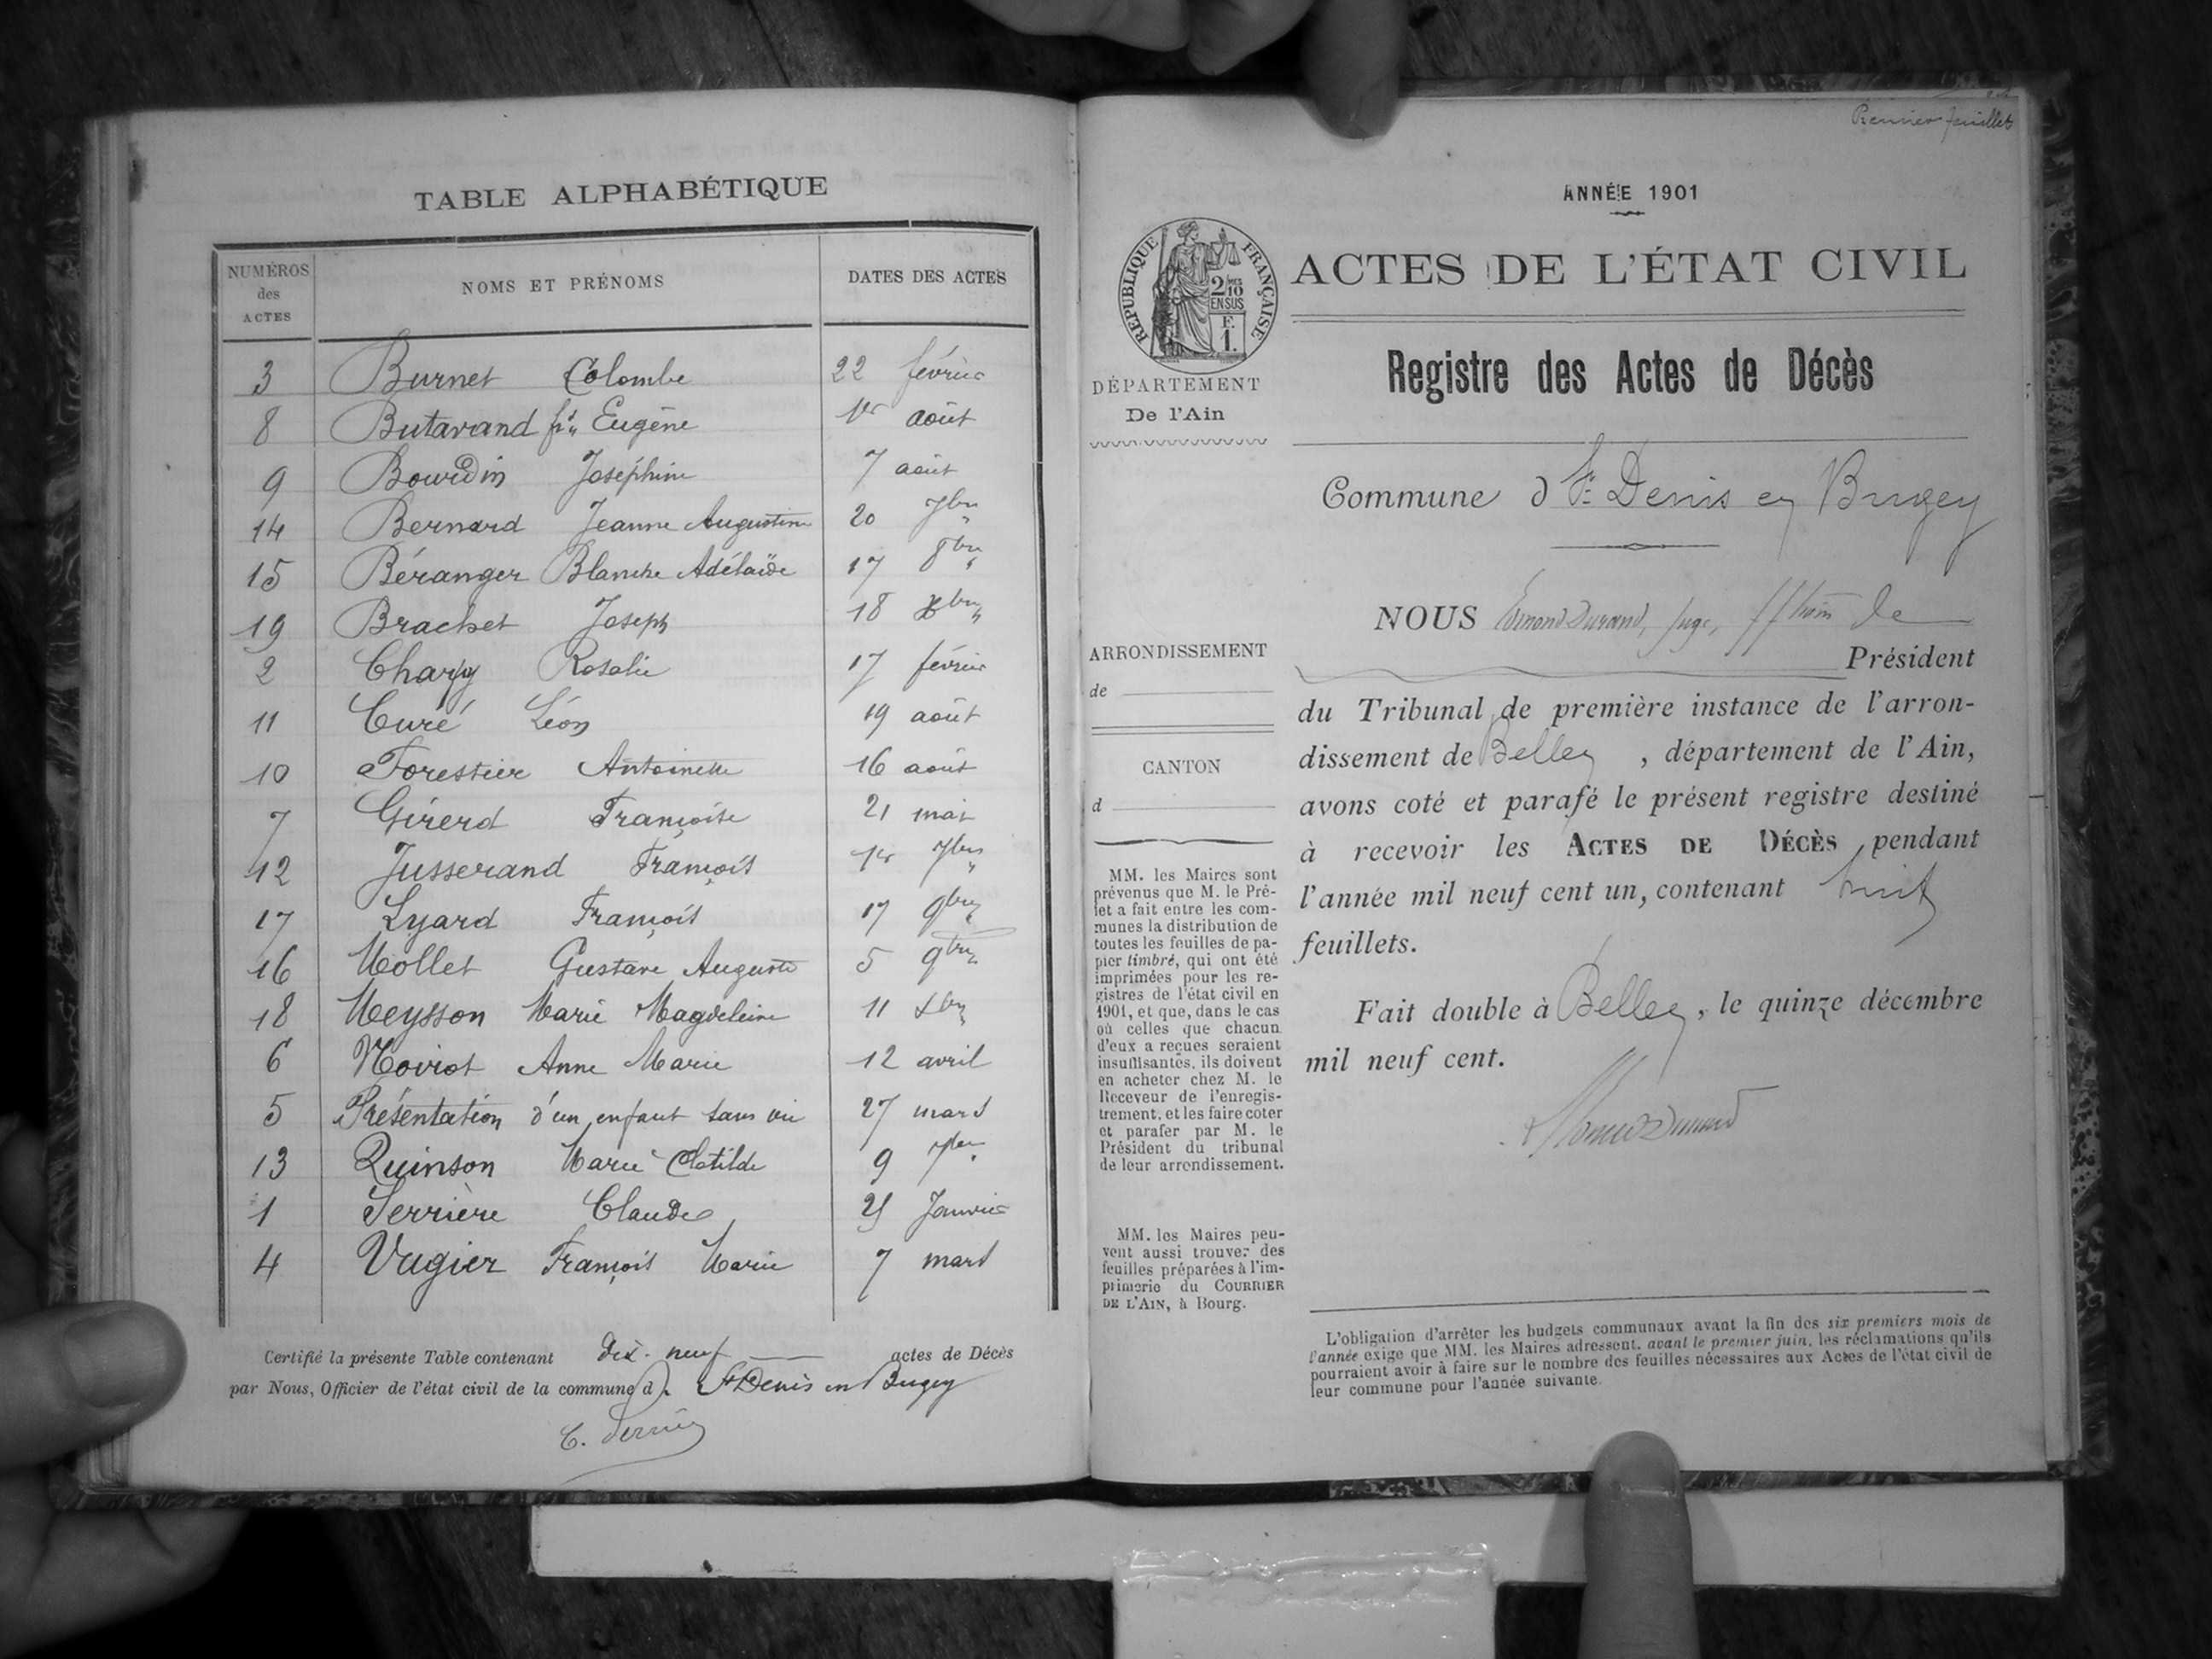 TABLE ALPHABÉTIQUE
NUMÉROS des ACTES NOMS ET PRÉNOMS DATES DES ACTES
3 Burnet Colombe 22 février
8 Butavand fs. Eugène 1er août
9 Bourdin Joséphine 7 août
14 Bernard Jeanne Augustine 20 7bre
15 Béranger Blanche Adélaïde 17 8bre
19 Brachet Joseph 18 Xbre
2 Charpy Rosalie 17 février
11 Curé Léon 19 août
10 Forestier Antoinette 16 août
7 Girerd Françoise 21 mai
12 Jusserand François 1er 7bre
17 Lyard François 17 9bre
16 Mollet Gustave Auguste 5 9bre
18 Meysson Marie Magdeleine 11 Xbre
6 Noirot Anne Marie 12 avril
5 Présentation d'un enfant sans vie 27 mars
13 Quinson Marie Clotilde 9 7bre
1 Serrière Claude Janvier
4 Vugier François Marie 7 mars
Certifié la présente Table contenant dix-neuf actes de Décès
par Nous, Officier de l'état civil de la commune d St Denis en Bugey
Premier feuillet
ANNÉE 1901
RÉPUBLIQUE FRANÇAISE
2/10 EN SUS
F. 1.
ACTES DE L'ÉTAT CIVIL
DÉPARTEMENT
De l'Ain
Registre des Actes de Décès
Commune d St Denis en Bugey
ARRONDISSEMENT
de
CANTON
d
MM. les Maires sont
prévenus que M. le Pré-
fet a fait entre les com-
munes la distribution de
toutes les feuilles de pa-
pier timbré, qui ont été
imprimées pour les re-
gistres de l'état civil en
1901, et que, dans le cas
où celles que chacun
d'eux a reçues seraient
insuffisantes, ils doivent
en acheter chez M. le
Receveur de l'enregis-
trement, et les faire coter
et parafer par M. le
Président du tribunal
de leur arrondissement.
MM. les Maires peu-
vent aussi trouver des
feuilles préparées à l'im-
primerie du COURRIER
DE L'AIN, à Bourg.
NOUS Edmond Durand, juge, ffons de
Président
du Tribunal de première instance de l'arron-
dissement de Belley, département de l'Ain,
avons coté et parafé le présent registre destiné
à recevoir les ACTES DE DÉCÈS pendant
l'année mil neuf cent un, contenant huit
feuillets.
Fait double à Belley, le quinze décembre
mil neuf cent.
L'obligation d'arrêter les budgets communaux avant la fin des six premiers mois de
l'année exige que MM. les Maires adressent, avant le premier juin, les réclamations qu'ils
pourraient avoir à faire sur le nombre des feuilles nécessaires aux Actes de l'état civil de
leur commune pour l'année suivante.